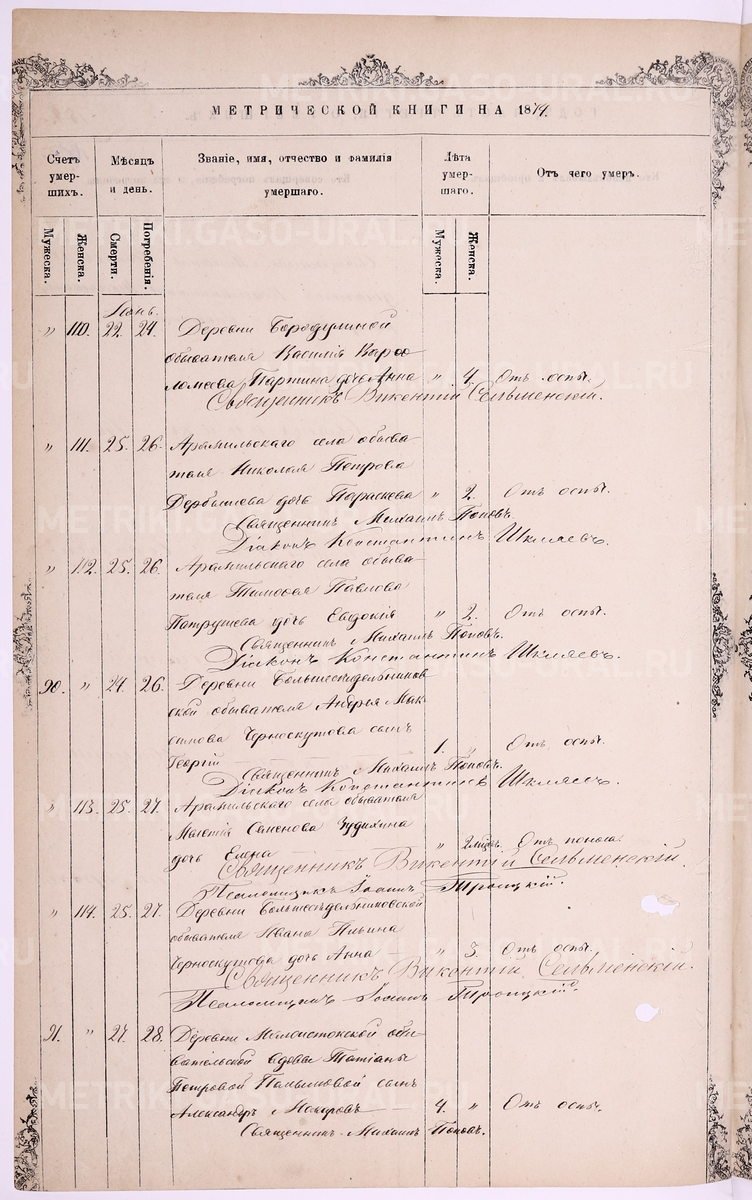 МЕТРИЧЕСКОЙ КНИГИ НА 1879.
Счетъ умер- шихъ.
Мѣсяцъ и день.
Званіе, имя, отчество и фамилія умершаго.
Лѣта умер- шаго.
Отъ чего умеръ.
Мужеска.
Женска.
Смерти.
Погребенія.
Мужеска.
Женска.
" 110. 22. 24. Деревни Бородулиной
обывателя Василія Варѳо
ломеева Партина дочь Анна " 4. Отъ оспы.
Священникъ Викентій Сельменскій.
" 111. 25. 26. Арамильскаго села обыва
теля Николая Петрова
Дербышева дочь Параскева " 2. Отъ оспы.
Священникъ Михаилъ Поповъ.
Діаконъ Константинъ Шкляевъ.
" 112. 25. 26. Арамильскаго села обыва
теля Тимоѳея Павлова
Патрушева дочь Евдокія " 2. Отъ оспы.
Священникъ Михаилъ Поповъ.
Діаконъ Константинъ Шкляевъ.
90. " 24. 26. Деревни Большеседельников
ской обывателя Андрея Мак
симова Черноскутова сынъ
Георгій 1. " Отъ оспы.
Священникъ Михаилъ Поповъ.
Діаконъ Константинъ Шкляевъ.
" 113. 25. 27. Арамильскаго села обывателя
Семенова
дочь Елена " 2 мѣс. Отъ поноса.
Священникъ Викентій Сельменскій.
Псаломщикъ Іоаннъ Троицкій.
" 114. 25. 27. Деревни Большеседельниковской
обывателя Ивана Ильина
Черноскутова дочь Анна " 3. Отъ оспы.
Священникъ Викентій Сельменскій.
Псаломщикъ Іоаннъ Троицкій.
91. " 27. 28. Деревни Малоистокской обы
вательской вдовы Татіаны
Петровой сынъ
Александръ 4. " Отъ оспы.
Священникъ Михаилъ Поповъ.
METRIKI.GASO-URAL.RU